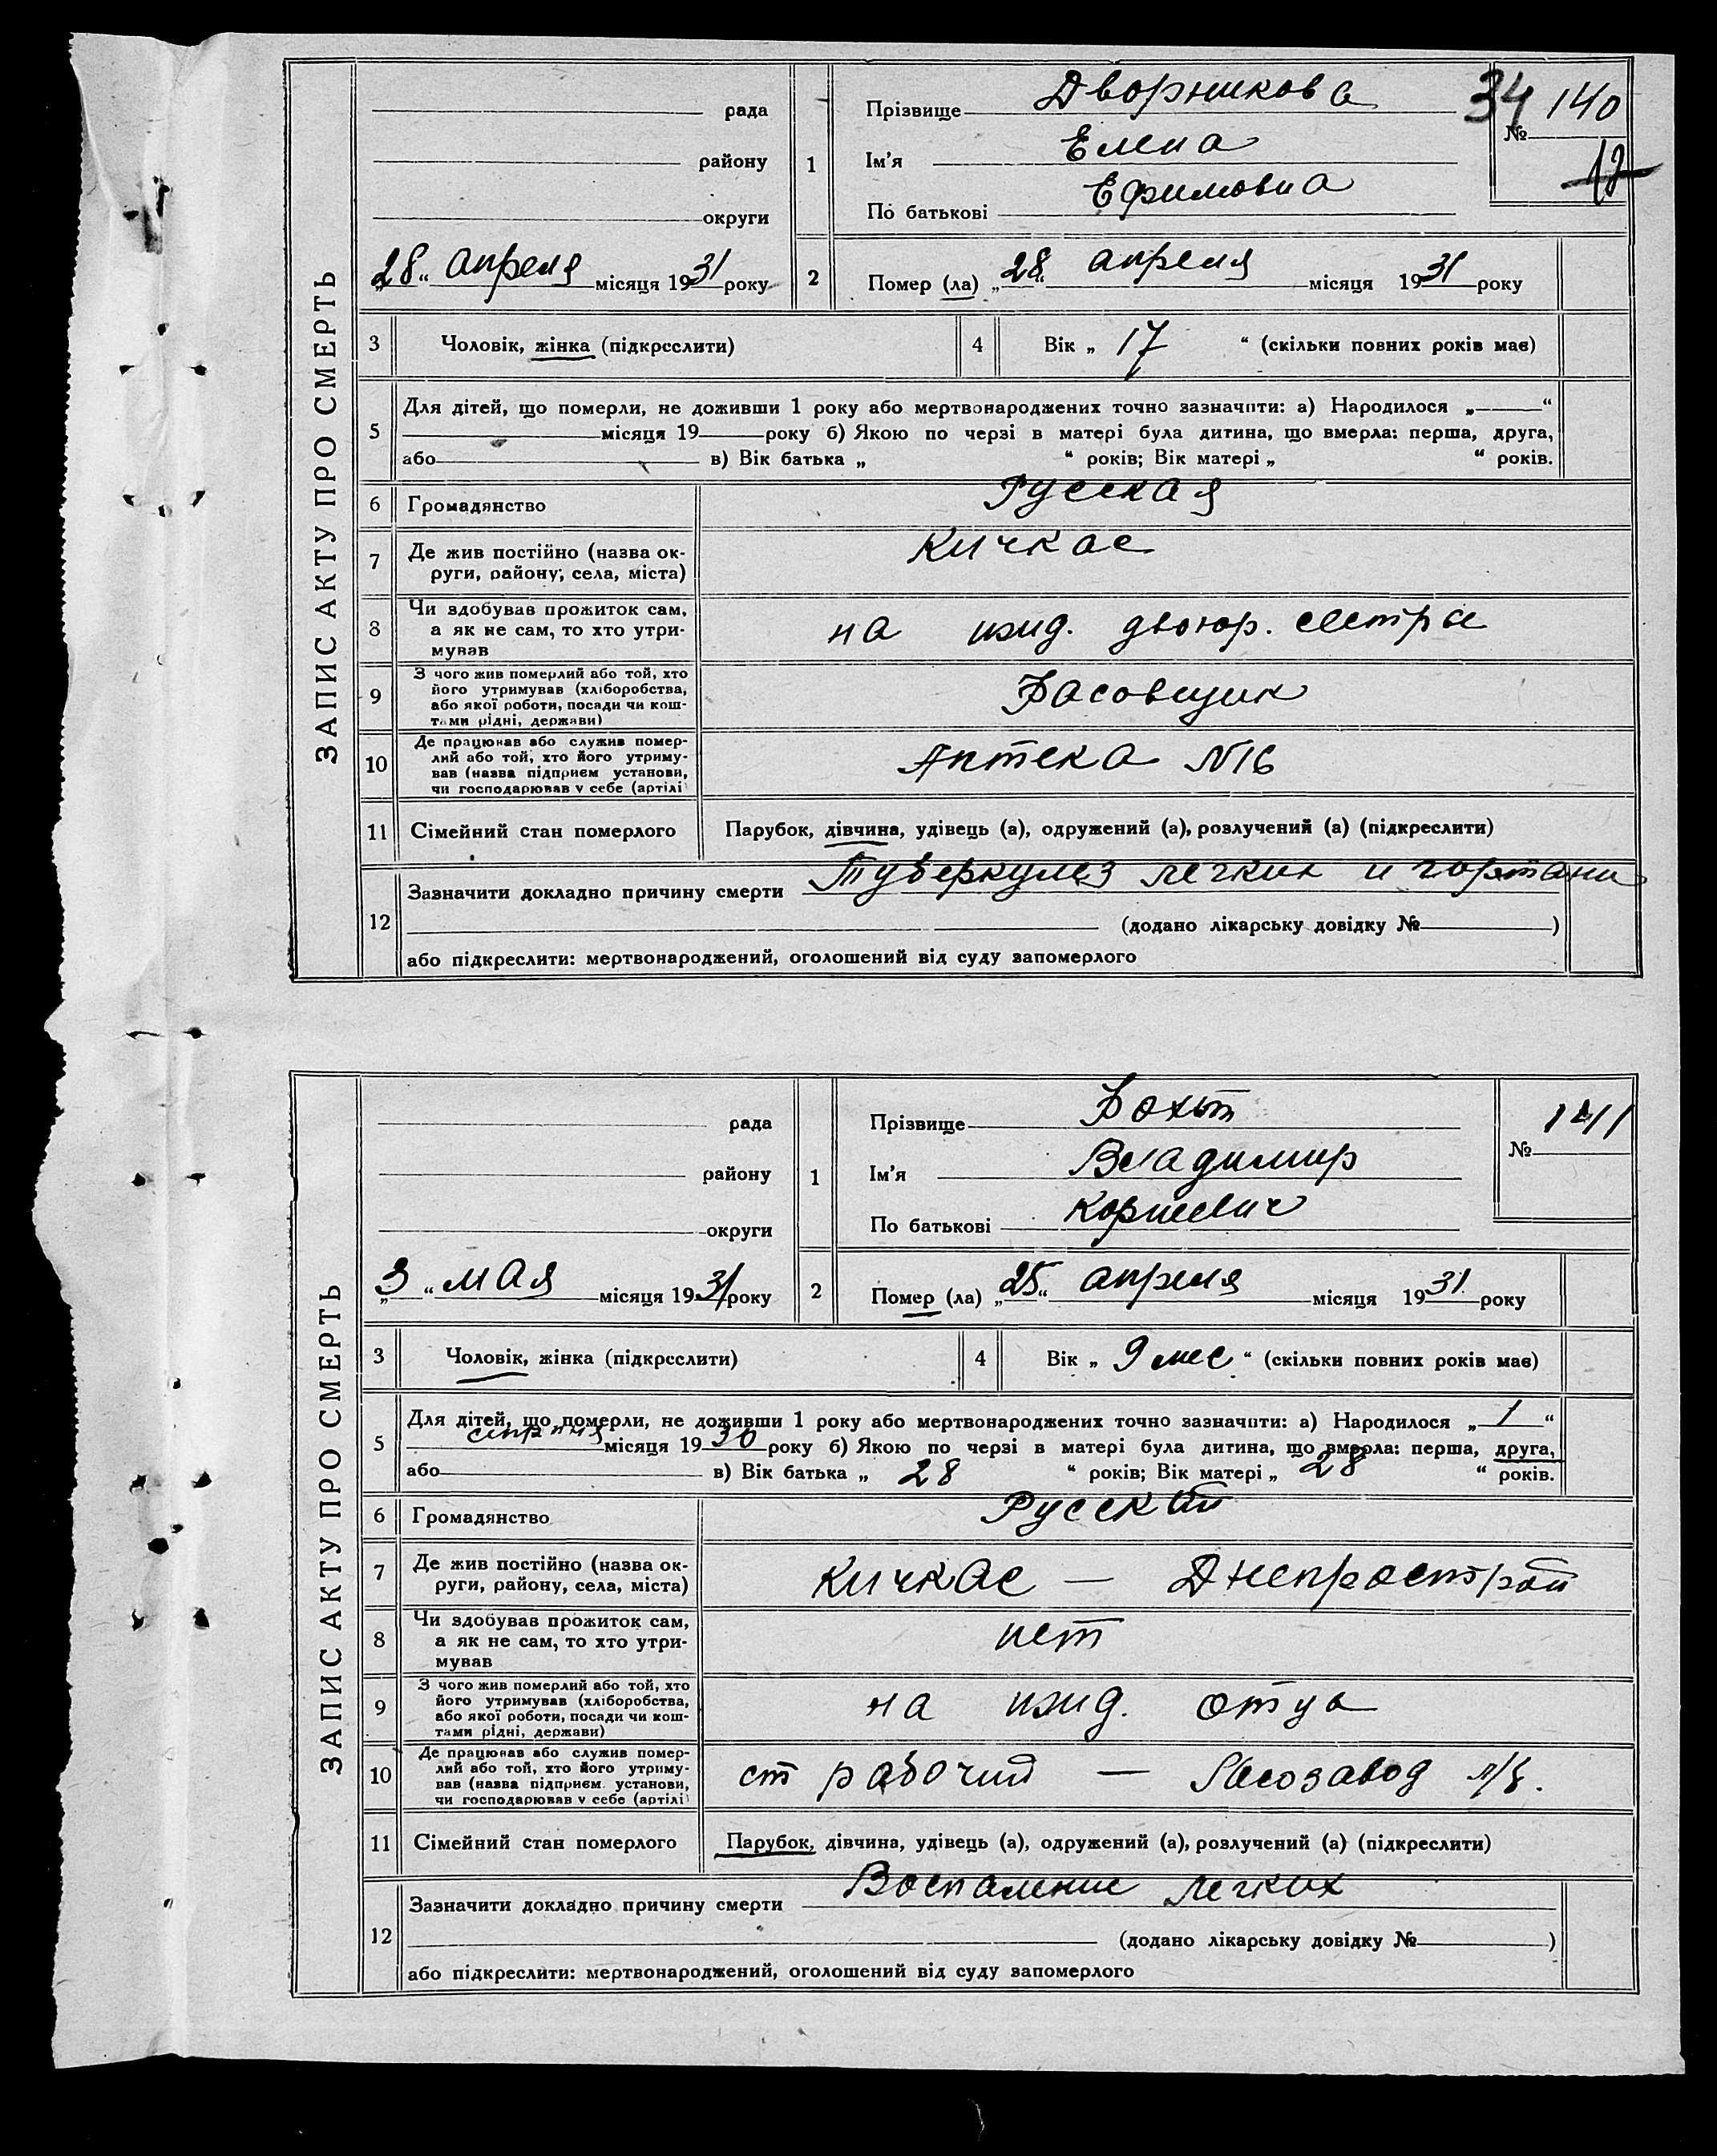 ЗАПИС АКТУ ПРО СМЕРТЬ
рада
району
округи
„28“ апреля місяця 1931 року
1
Прізвище Дворникова
Ім'я Елена
По батькові Ефимовна
34
№ 140
12
2 Помер (ла) „28“ апреля місяця 1931 року
3 Чоловік, жінка (підкреслити)
4 Вік „ 17 “ (скільки повних років має)
5 Для дітей, що померли, не доживши 1 року або мертвонароджених точно зазначити: а) Народилося „ “
місяця 19 року б) Якою по черзі в матері була дитина, що вмерла: перша, друга,
або в) Вік батька „ “ років; Вік матері „ “ років.
6 Громадянство Русская
7 Де жив постійно (назва ок-
руги, району, села, міста) Кичкас
8 Чи здобував прожиток сам,
а як не сам, то хто утри-
мував
на ижд. двоюр. сестры
9 З чого жив померлий або той, хто
його утримував (хліборобства,
або якої роботи, посади чи кош-
тами рідні, держави)
Фасовщик
10 Де працював або служив помер-
лий або той, хто його утриму-
вав (назва підприєм установи,
чи господарював у себе (артілі)
Аптека №16
11 Сімейний стан померлого Парубок, дівчина, удівець (а), одружений (а), розлучений (а) (підкреслити)
12 Зазначити докладно причину смерти Туберкулез легких и гортани
(додано лікарську довідку № )
або підкреслити: мертвонароджений, оголошений від суду запомерлого
ЗАПИС АКТУ ПРО СМЕРТЬ
рада
району
округи
„3“ мая місяця 1931 року
1
Прізвище
Ім'я Владимир
По батькові Корнеевич
№ 141
2 Помер (ла) „25“ апреля місяця 1931 року
3 Чоловік, жінка (підкреслити)
4 Вік „ 9 мес “ (скільки повних років має)
5 Для дітей, що померли, не доживши 1 року або мертвонароджених точно зазначити: а) Народилося „ 1 “
місяця 1930 року б) Якою по черзі в матері була дитина, що вмерла: перша, друга,
або в) Вік батька „ 28 “ років; Вік матері „ 28 “ років.
6 Громадянство Русский
7 Де жив постійно (назва ок-
руги, району, села, міста) Кичкас — Днепрострой
8 Чи здобував прожиток сам,
а як не сам, то хто утри-
мував
нет
9 З чого жив померлий або той, хто
його утримував (хліборобства,
або якої роботи, посади чи кош-
тами рідні, держави)
на ижд. отца
10 Де працював або служив помер-
лий або той, хто його утриму-
вав (назва підприєм. установи,
чи господарював у себе (артілі)
ст рабочий — Лесозавод
11 Сімейний стан померлого Парубок, дівчина, удівець (а), одружений (а), розлучений (а) (підкреслити)
12 Зазначити докладно причину смерти Воспаление легких
(додано лікарську довідку № )
або підкреслити: мертвонароджений, оголошений від суду запомерлого